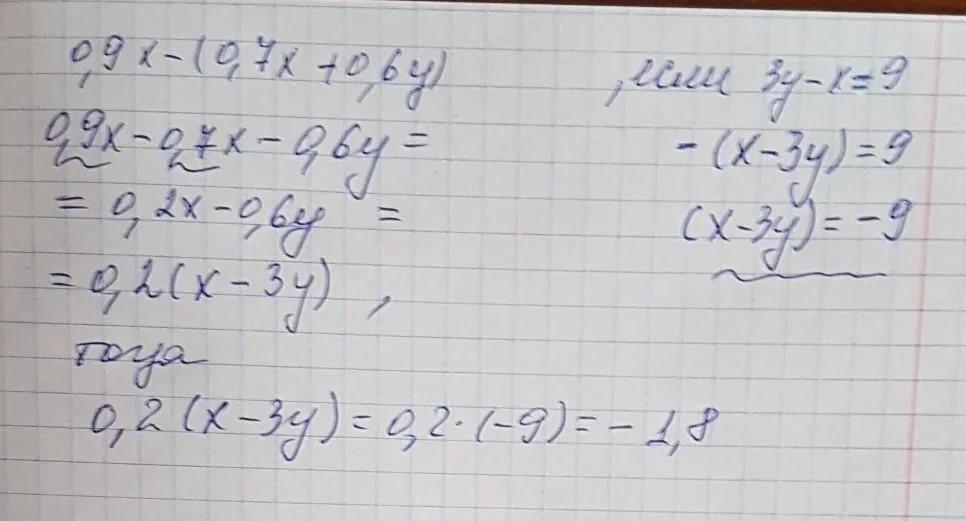 0,9x-(0,7x+0,6y) , если 3y-x=9
0,9x-0,7x-0,6y= -(x-3y)=9
= 0,2x-0,6y = (x-3y)=-9
= 0,2(x-3y) ,
тогда
0,2(x-3y)=0,2·(-9)=-1,8